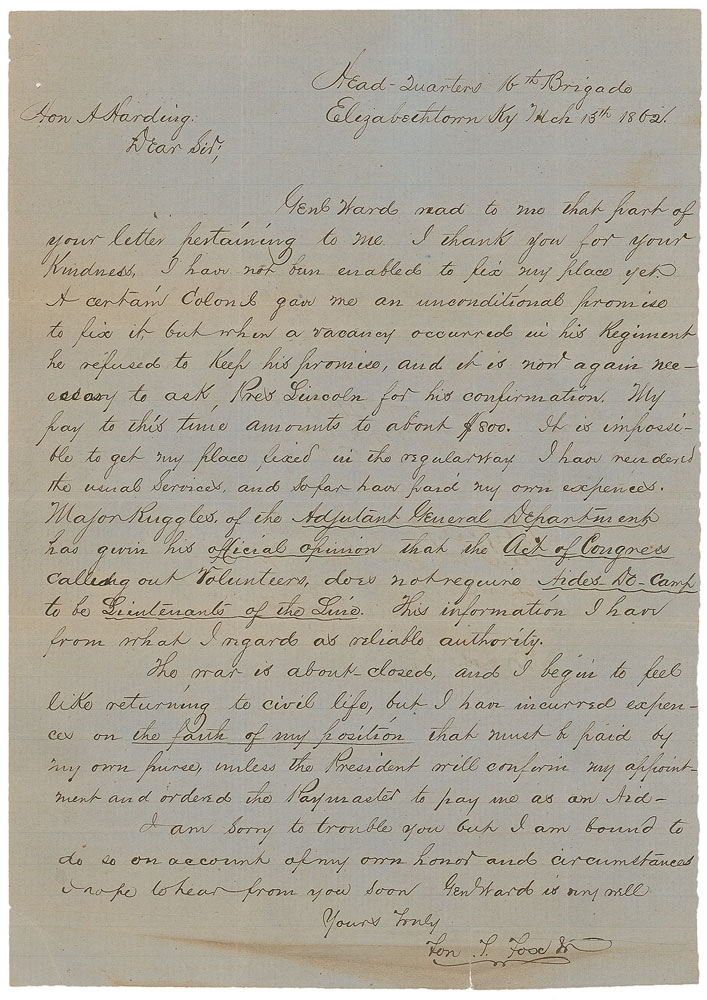 Head-Quarters 16th Brigade
Elizabethtown Ky Mch 15th 1862.
Hon A Harding.
Dear Sir;
Genl Ward read to me that part of
your letter pertaining to me I thank you for your
Kindness, I have not bun enabled to fix my place yet.
A certain Colonel gave me an unconditional promise
to fix it, but when a vacancy occurred in his Regiment
he refused to keep his promise, and it is now again nec-
essary to ask, Pres Lincoln for his confirmation. My
pay to this time amounts to about $800. It is impossi-
ble to get my place fixed in the regular way I have rendered
the usual services, and so far have paid my own expences.
Major Ruggles, of the Adjutant General Department
has givin his official opinion that the Act of Congress
calling out Volunteers, does not require Aides De-Camp
to be Lieutenants of the Line. This information I have
from what I regard as reliable authority.
The war is about-closed, and I begin to feel
like returning to civil life, but I have incurred expen-
ces on the faith of my position that must be paid by
my own purse, unless the President will confirm my appoint-
ment and ordered the Paymaster to pay me as an Aid-
I am sorry to trouble you but I am bound to
do so on account of my own honor and circumstances
I hope to hear from you soon Genl Ward is very well
Yours Truly
Fon. T. Fox Jr